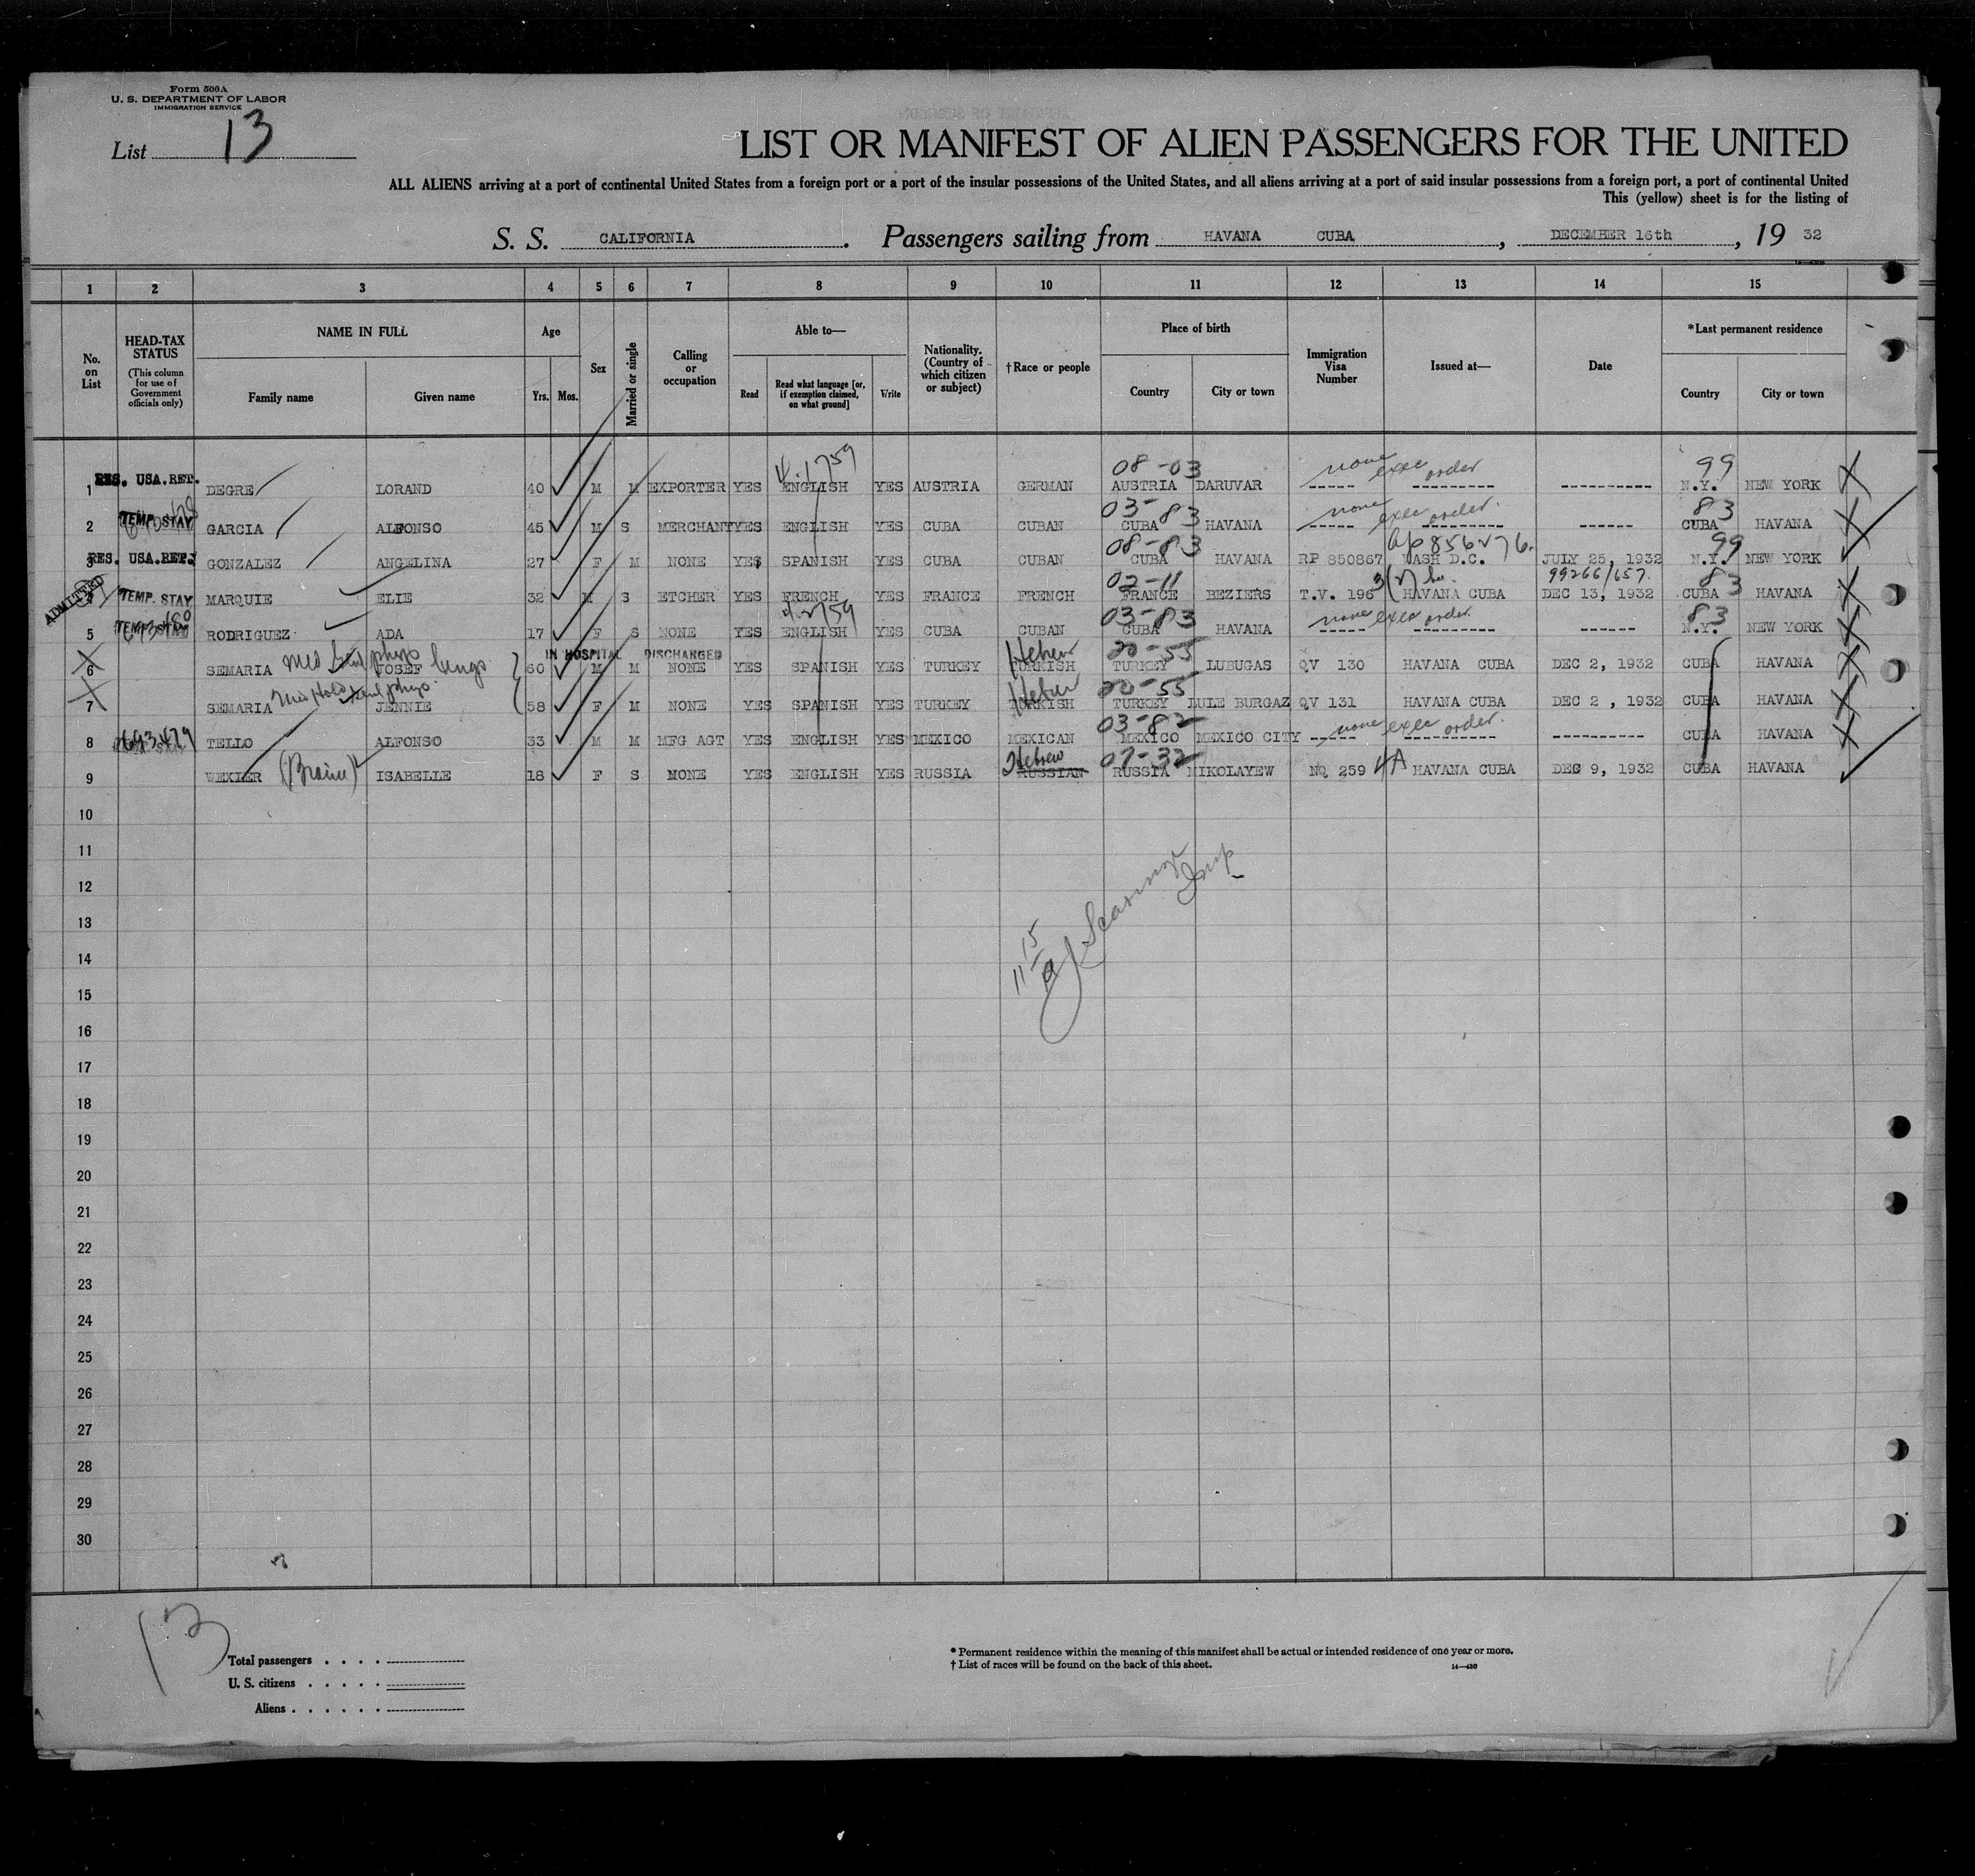 Form 500A
U. S. DEPARTMENT OF LABOR
IMMIGRATION SERVICE
List 13
LIST OR MANIFEST OF ALIEN PASSENGERS FOR THE UNITED
ALL ALIENS arriving at a port of continental United States from a foreign port or a port of the insular possessions of the United States, and all aliens arriving at a port of said insular possessions from a foreign port, a port of continental United
This (yellow) sheet is for the listing of
S. S. CALIFORNIA. Passengers sailing from HAVANA CUBA, DECEMBER 16th, 19 32
1 2 3 4 5 6 7 8 9 10 11 12 13 14 15
No. on List
HEAD-TAX STATUS (This column for use of Government officials only)
NAME IN FULL
Family name Given name
Age
Yrs. Mos.
Sex
Married or single
Calling or occupation
Able to—
Read
Read what language [or, if exemption claimed, on what ground]
Write
Nationality. (Country of which citizen or subject)
†Race or people
Place of birth
Country City or town
Immigration Visa Number
Issued at—
Date
*Last permanent residence
Country City or town
4-1759 08-03 none exec order 99
1 RES. USA.RET. DEGRE LORAND 40 M M EXPORTER YES ENGLISH YES AUSTRIA GERMAN AUSTRIA DARUVAR ----- --------- ---------- N.Y. NEW YORK
03-83 none exec order. 83
2 TEMP. STAY GARCIA ALFONSO 45 M S MERCHANT YES ENGLISH YES CUBA CUBAN CUBA HAVANA ----- --------- ------ CUBA HAVANA
08-83 99
3 RES. USA.RET. GONZALEZ ANGELINA 27 F M NONE YES SPANISH YES CUBA CUBAN CUBA HAVANA RP 850867 WASH D.C. JULY 25, 1932 N.Y. NEW YORK
ADMITTED 02-11 99266/657 83
4 TEMP. STAY MARQUIE ELIE 32 M S ETCHER YES FRENCH YES FRANCE FRENCH FRANCE BEZIERS T.V. 196 HAVANA CUBA DEC 13, 1932 CUBA HAVANA
03-83 none exec order. 83
5 RODRIGUEZ ADA 17 F S NONE YES ENGLISH YES CUBA CUBAN CUBA HAVANA ----- --------- ------ N.Y. NEW YORK
IN HOSPITAL DISCHARGED Hebrew 20-55
6 SEMARIA JOSEF lungs 60 M M NONE YES SPANISH YES TURKEY TURKISH TURKEY LUBUGAS QV 130 HAVANA CUBA DEC 2, 1932 CUBA HAVANA
Hebrew 20-55
7 SEMARIA JENNIE 58 F M NONE YES SPANISH YES TURKEY TURKISH TURKEY LULE BURGAZ QV 131 HAVANA CUBA DEC 2 , 1932 CUBA HAVANA
03-82 none exec order.
8 TELLO ALFONSO 33 M M MFG AGT YES ENGLISH YES MEXICO MEXICAN MEXICO MEXICO CITY ----- --------- ---------- CUBA HAVANA
Hebrew 07-32
9 WEXLER ISABELLE 18 F S NONE YES ENGLISH YES RUSSIA RUSSIAN RUSSIA NIKOLAYEW NQ 259 HAVANA CUBA DEC 9, 1932 CUBA HAVANA
10
11
12
13
14
15
16
17
18
19
20
21
22
23
24
25
26
27
28
29
30
13
Total passengers . . . .
U. S. citizens . . . . .
Aliens . . . . . .
* Permanent residence within the meaning of this manifest shall be actual or intended residence of one year or more.
† List of races will be found on the back of this sheet.
14—430